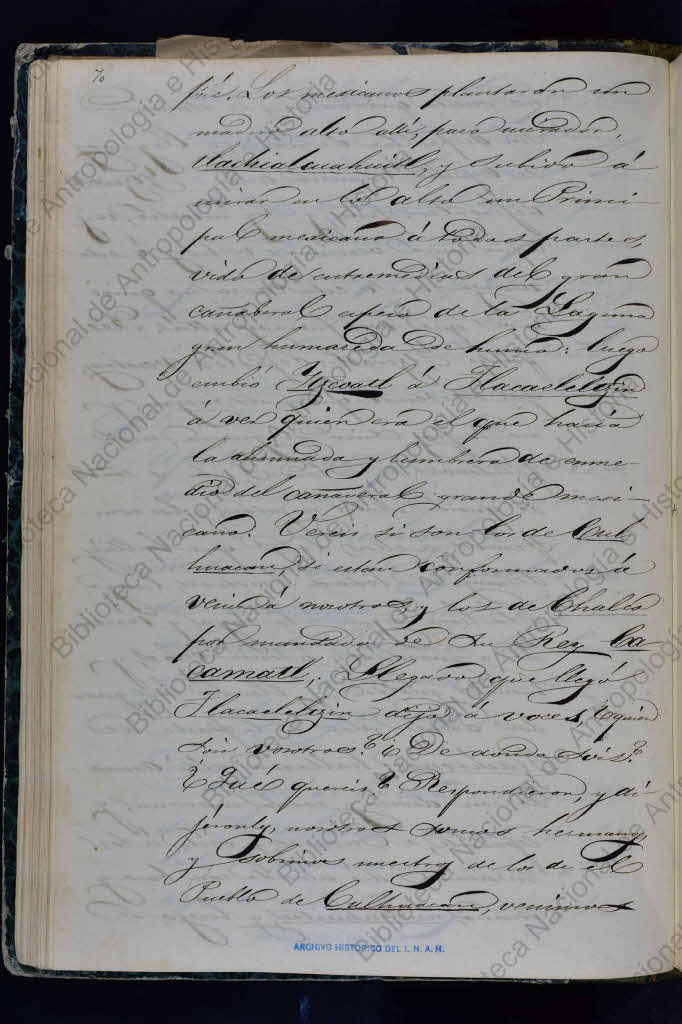 70
pié. Los mexicanos plantaron un
madero alto allí, para mirador,
tlachialcuahuitl, y subido á
mirar en lo alto un Princi-
pal mexicano á todas partes,
vido de entremedias del gran
cañaberal espeso de la Laguna
gran humareda de humo: luego
embió Ytzcoatl á Tlacaeleltzin
á ver quien era el que hacia
la ahumada y lumbrera de enme-
dio del cañaveral grande mexi-
cano. Vereis si son los de Cul-
huacan, si estan conformados á
venir á nosotros, y los de Chalco
por mandado de su Rey Ca-
camatl. Llegado que llegó
Tlacaeleltzin dijo á voces, ¿quien
sois vosotros? ¿De donde sois?
¿Qué quereis? Respondieron, y di-
jéronle, nosotros somos hermanos,
y sobrinos nuestros de los de el
Pueblo de Culhuacan, venimos
ARCHIVO HISTORICO DEL I. N. A. H.
Biblioteca Nacional de Antropología e Historia